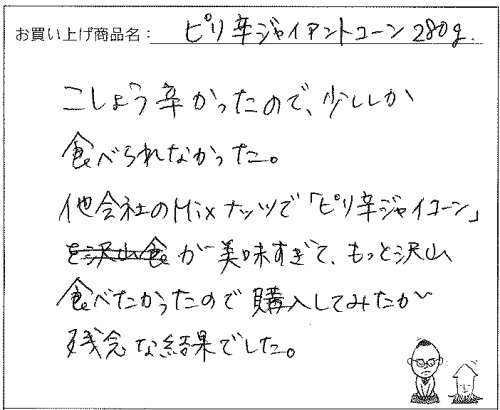 お買い上げ商品名： ピリ辛ジャイアントコーン280g.
こしょう辛かったので、少ししか
食べられなかった。
他会社のMixナッツで「ピリ辛ジャイコーン」
を沢山食が美味すぎて、もっと沢山
食べたかったので購入してみたが
残念な結果でした。